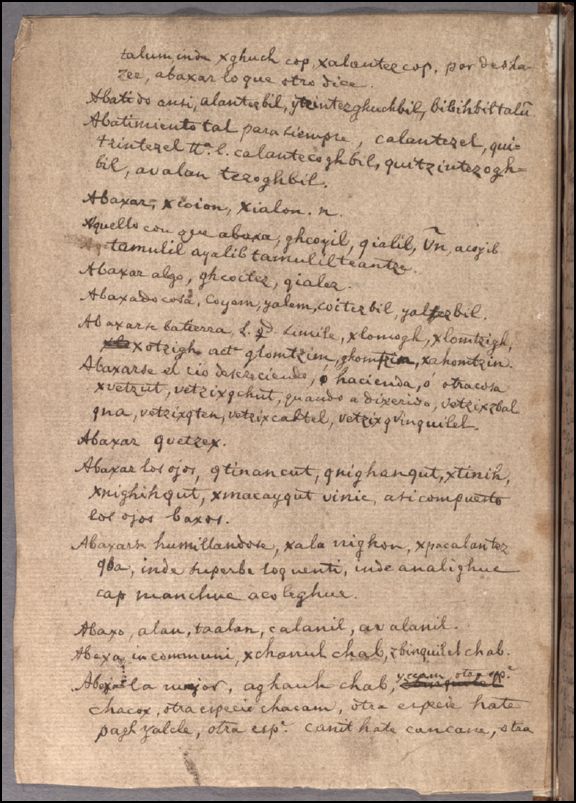 talum, inde xghuch cop, xalantez cop, por desha-
zer, abaxar lo que otro dice.
Abatido ansi, alantezbil, ytzintezghuchbil, bibihbil talū
Abatimiento tal para siempre, calantezel, qui-
tzintezel ttª. l. calantezoghbil, quitzintezogh-
bil, avalan tezoghbil.
Abaxar, xcoion, xialon. n.
Aquello con que abaxa, ghcoyil, qialil, Vn, acoyib
tamulil ayalib tamulil teantze.
Abaxar algo, ghcoitez, qialez.
Abaxado cosa, coyem, yalem, coitezbil, yaltezbil.
Abaxarse batierra, l. qd. simile, xlomogh, xlomtzigh,
xotzigh act. qlomtzim, ghomtzin, xahomtzin.
Abaxarse el rio descreciendo, o hacienda, o otra cosa
xvetzut, vetzixqchut, quando a dixerido, vetzixzbal
qna, vetzixqten, vetzixcahtel, vetzixqvinquilel.
Abaxar quetzex.
Abaxar los ojos, qtinancut, qnighanqut, xtinih,
xnighihqut, xmacayqut vinic, asi compuesto
los ojos baxos.
Abaxarse humillandose, xala nighon, xpacalantez
qba, inde superbe loquenti, inde analighuc
cap manchuc acoleghuc.
Abaxo, alan, taalan, calanil, avalanil.
Abexa, in communi, xchanul chab, zbinquilel chab.
Abexa la mejor, aghauh chab, yccam, otra espª.
chacox, otra especie chacam, otra especie hate
pagh yalcle, otra espª. canit hate cancanc, otra